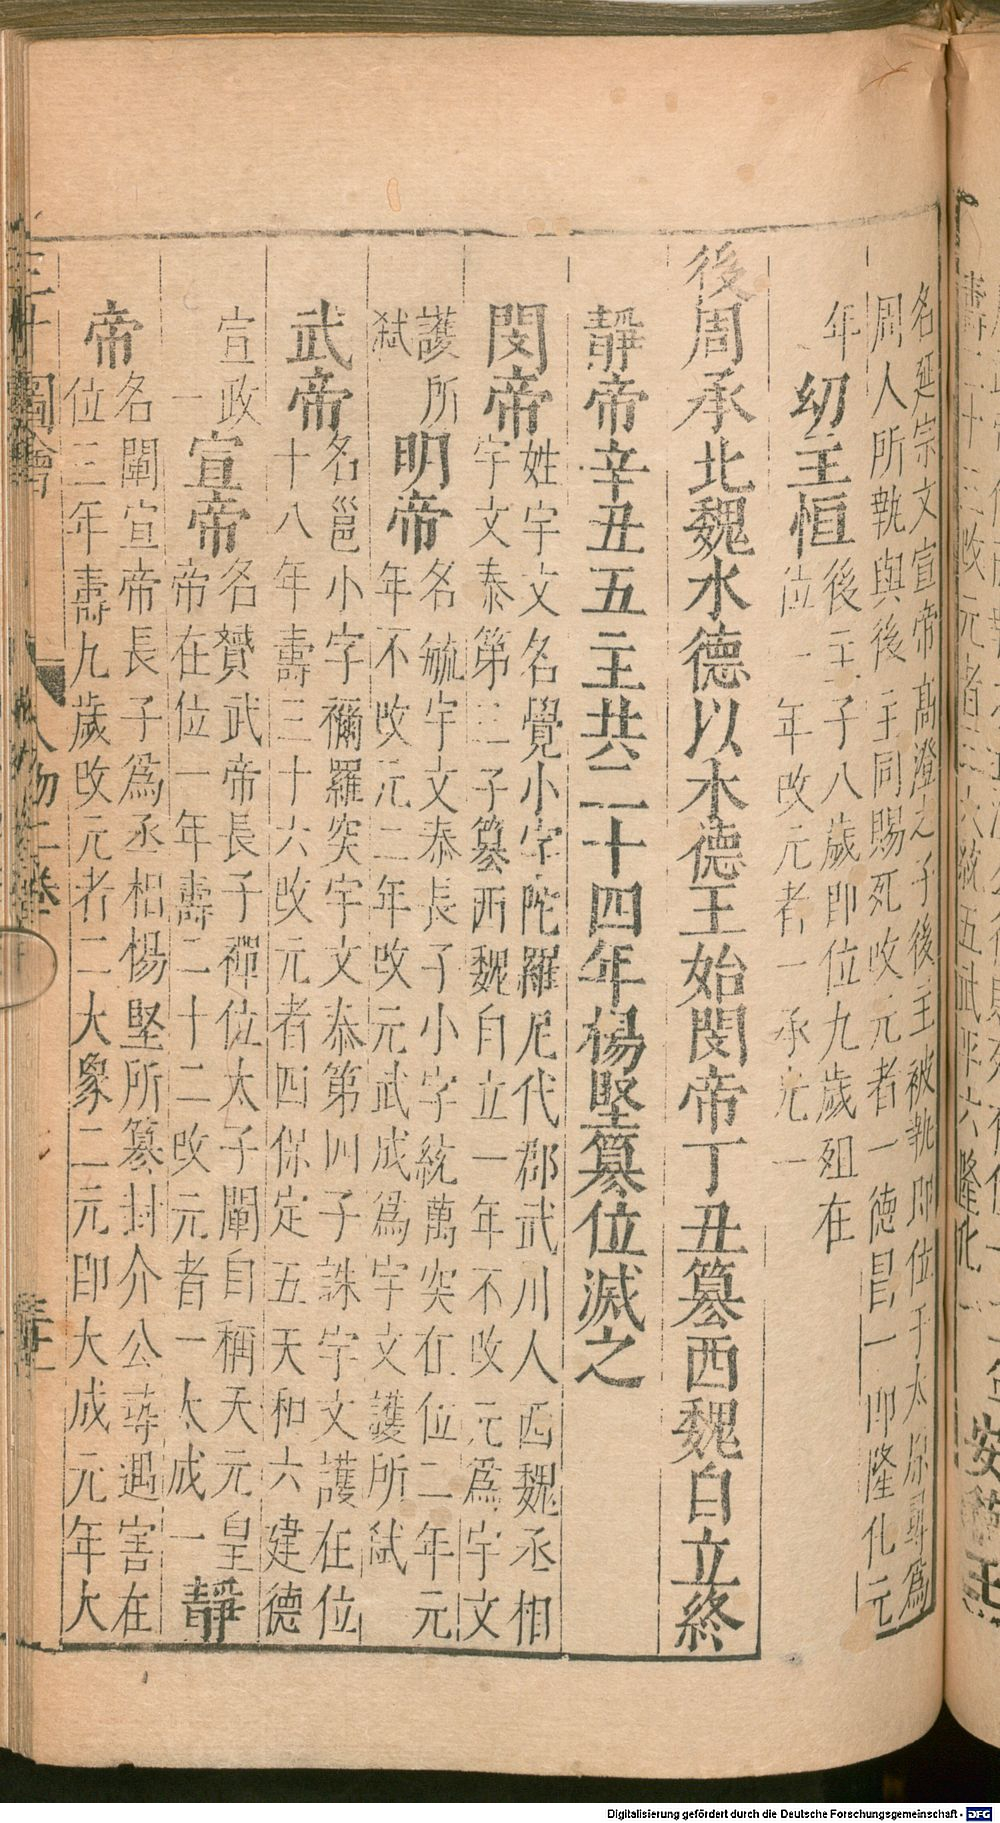 名延宗文宣帝高澄之子後主被執即位于太原尋爲
周人所執與後主同賜死改元者一德昌一即隆化元
年
幼主恒
後主子八歲即位九歲殂在
位一年改元者一承光一
後周承北魏水德以木德王始閔帝丁丑篡西魏自立終
靜帝辛丑五主共二十四年楊堅篡位滅之
閔帝
姓宇文名覺小字陀羅尼代郡武川人西魏丞相
宇文泰第三子篡西魏自立一年不改元爲宇文
護所
弑
明帝
名毓宇文泰長子小字統萬突在位二年元
年不改元二年改元武成爲宇文護所弑
武帝
名邕小字禰羅突宇文泰第四子誅宇文護在位
十八年壽三十六改元者四保定五天和六建德
宣政
一
宣帝
名贇武帝長子禪位太子闡自稱天元皇
帝在位一年壽二十二改元者一大成一
靜
帝
名闡宣帝長子爲丞相楊堅所篡封介公尋遇害在
位三年壽九歲改元者二大象二元即大成元年大
三才圖會
人物二卷
Digitalisierung gefördert durch die Deutsche Forschungsgemeinschaft - DFG